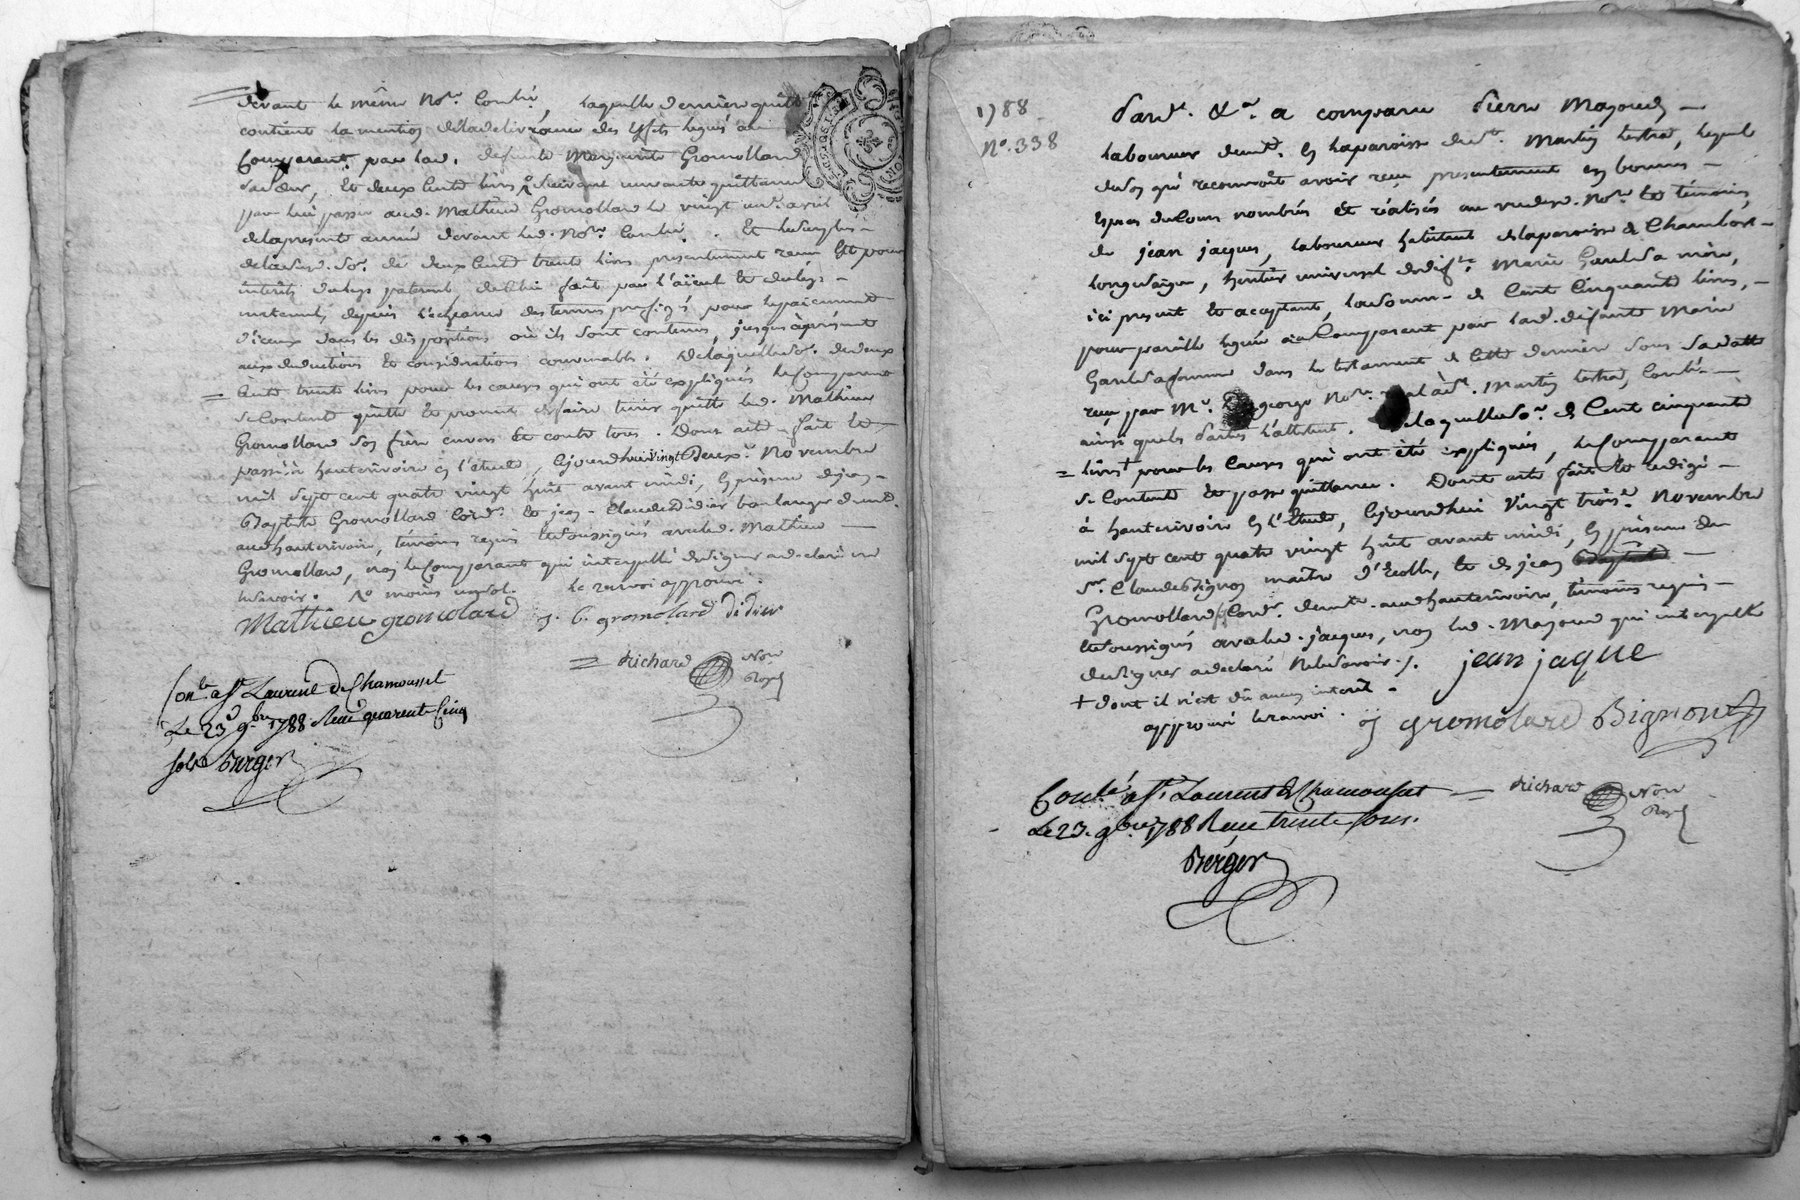 devant le même No.re Contrô, laquelle dernière quitt.ce
contient la mention de la delivrance des effets legués au
Comparant par lad. defunte Marguerite Gromollard
sa sœur, et deux cents livres suivant une autre quittance
par lui passée aud. Mathieu Gromollard le vingt un.e avril
de la presente année devant led. No.re Contrô. Et le surplus
de lad. so.e de deux cent trente livres presentement reçue est pour
interêts du legs paternel de lui fait par l'aïeul et du legs
maternel, depuis l'echeance des termes prefigés pour le paiement
d'iceux dans les dispositions où ils sont contenus, jusques à présent
aux deductions et considerations convenables. De laquelle so.e de deux
cents trente livres pour les causes qui ont été expliquées le Comparant
se contente quitte et promet de faire tenir quitte led. Mathieu
Gromollard son frère envers et contre tous. Dont acte fait et
passé à hauterivoire en l'etude, cejourd'hui vingt Deux.e Novembre
mil sept cent quatre vingt huit avant midi, en présence de jean
Baptiste Gromollard cord.r et jean Claude Didier boulanger demt.
aud hauterivoire, témoins requis et soussignés avec led. Mathieu
Gromollard, non le Comparant qui interpellé de signer a declaré ne
le savoir.
le renvoi approuvé.
Mathieu gromolard j. b. gromolard didier
Richard Not.re Royal
Con.lé à St. Laurent de Chamousset
Le 23 9.bre 1788 Reçu quarante Cinq
sols Berger
1788
N.o 338
Pard.t &.a a comparu Pierre Mazoud
laboureur demt. en la paroisse de St. Martin lestra, lequel
de son gré reconnoit avoir reçu presentement en bonnes
espèces de cours nombrées et réalisées au vu desd. No.re et témoins,
de jean jacques, laboureur habitant de la paroisse de Chambost
longesaigne, heritier universel de def.te Marie Gaulé sa mère,
ici present et acceptant, la somme de Cent Cinquante livres,
pour pareille leguée au Comparant par lad. defunte Marie
Gaulé sa femme dans le testament de cette dernière sous sa datte
reçu par M.e george No.re à St. Martin lestra, Contrô
ainsi que les parties l'attestent. De laquelle so.e de Cent cinquante
livres+ pour les causes qui ont été expliquées, le Comparant
se contente et passe quittance. Dont acte fait et redigé
à hauterivoire en l'Etude, cejourd'hui Vingt trois.e Novembre
mil sept cent quatre vingt huit avant midi, en présence de
Sr. Claude Bignon maître d'Ecolle, et de jean
Gromollard Cord.r demt. aud hauterivoire, témoins requis
et soussignés avec led. jacques, non led. Mazoud qui interpellé
de signer a declaré ne le savoir./. jean jaque
+ dont il n'est dû aucun interêt.
approuvé le renvoi. j gromolard Bignon
Con.lé à St. Laurent de Chamousset Richard Not.re Royal
Le 23. 9.bre 1788 Reçu trente sous.
Berger